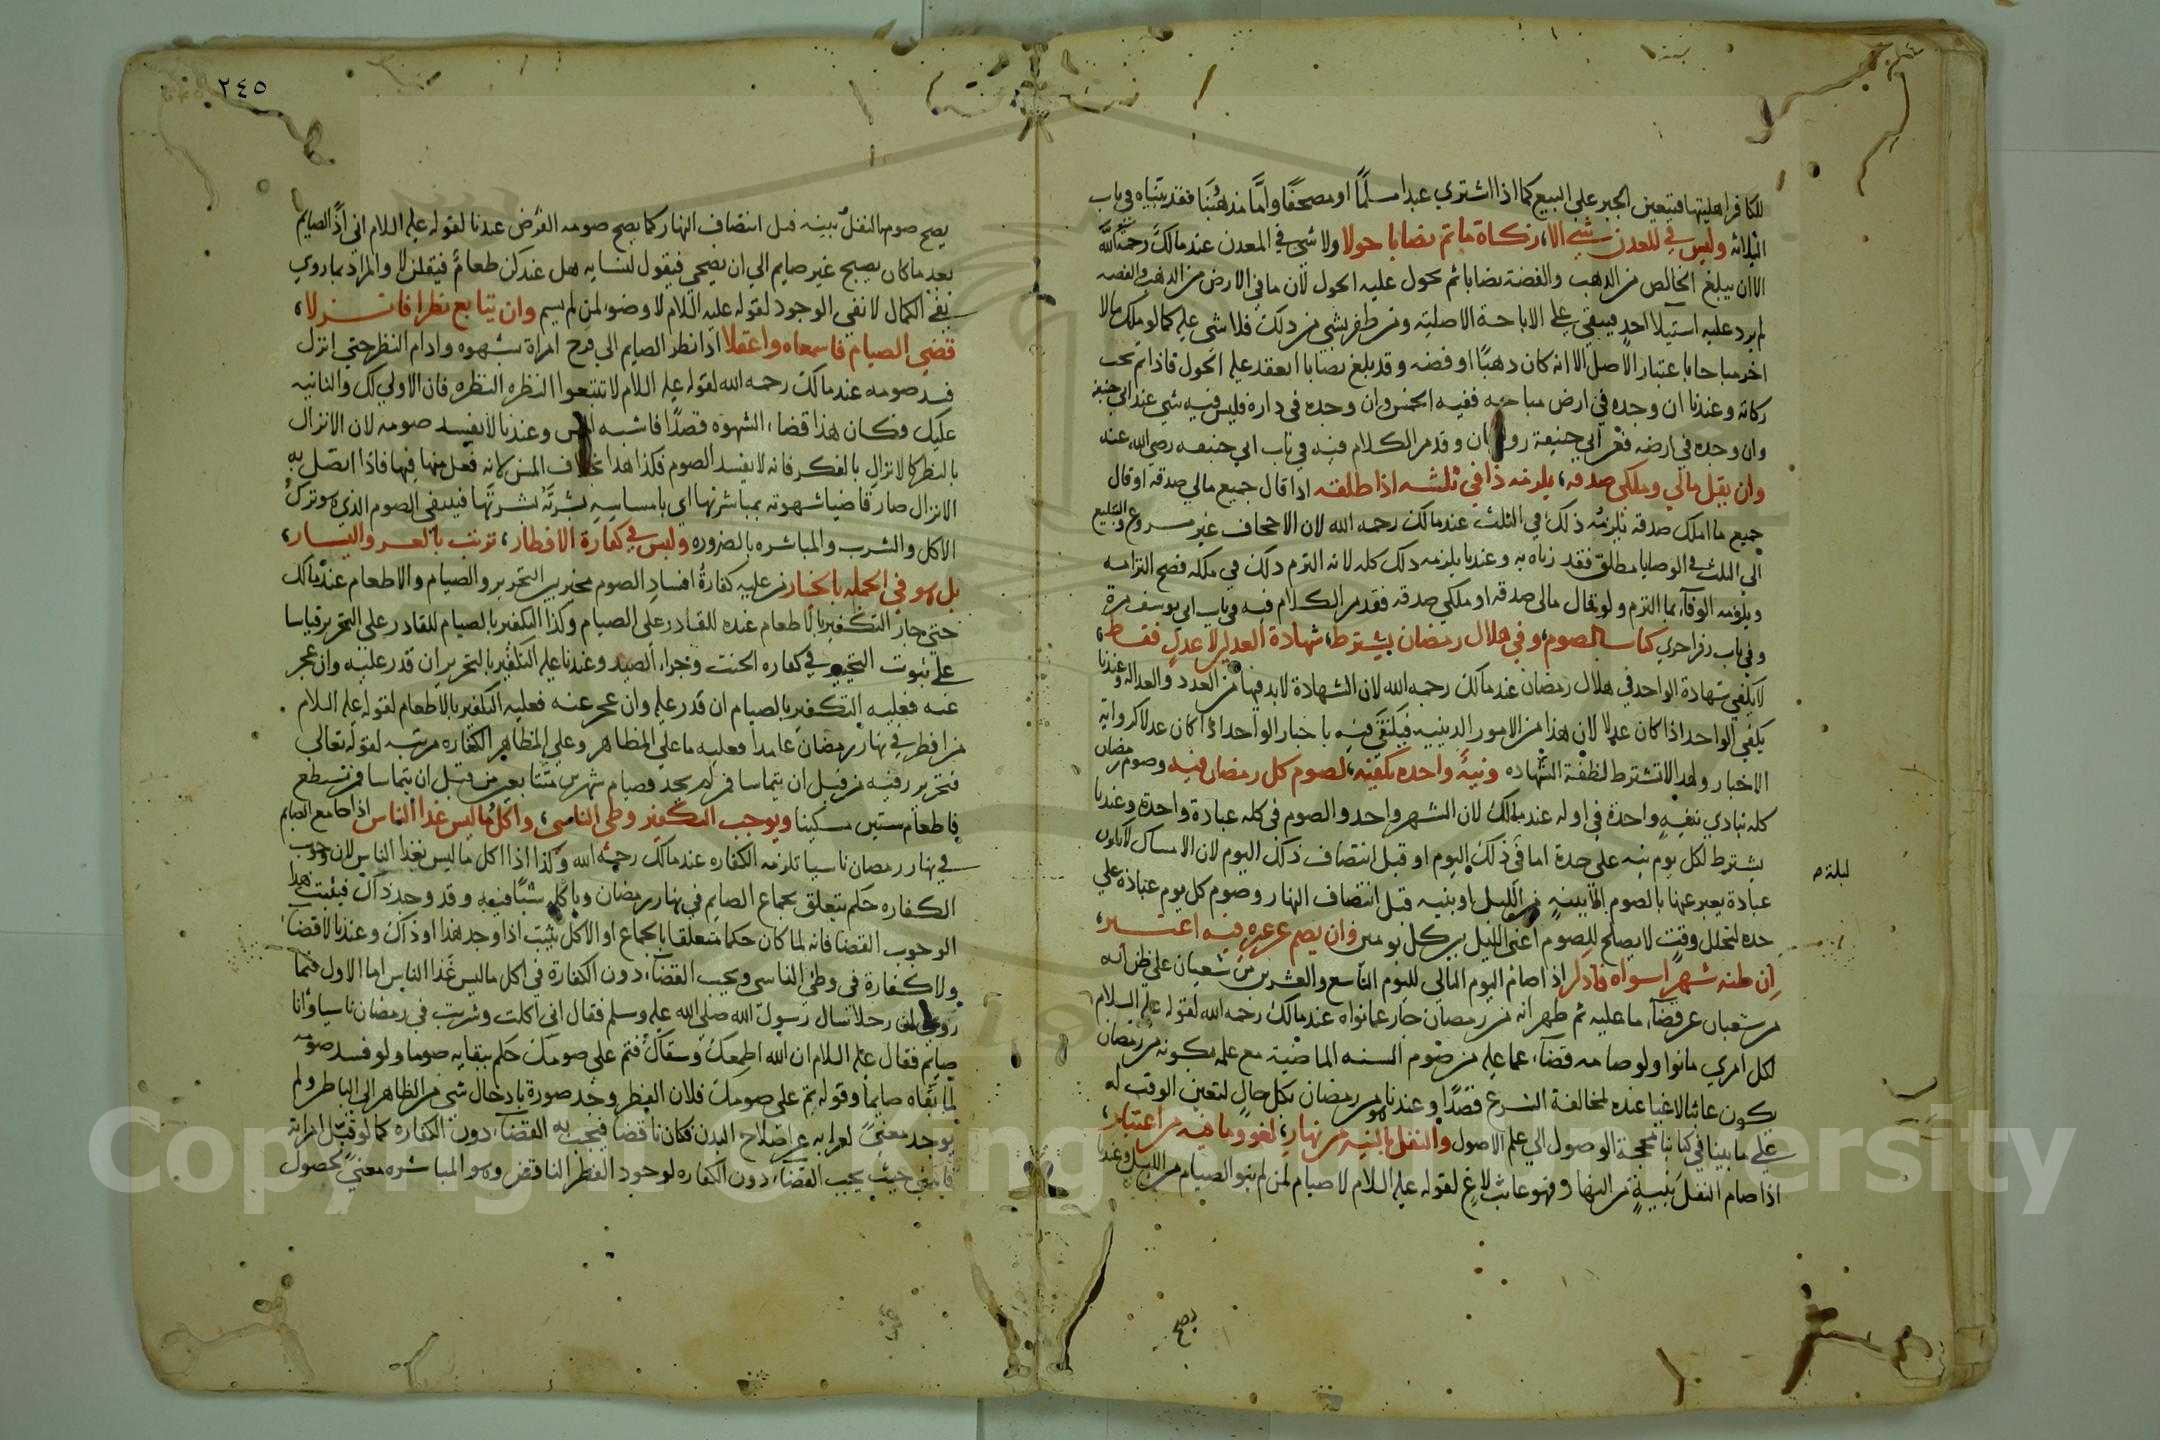 للكافر اهليتها فيتعين الجبر على البيع كما اذا اشتري عبدا مسلمًا او مصحفًا وامَّا مذهبنا فقد بيناه في باب
الثلاثة وليس في المعدن شيء الا، زكاة ما تم نصابا حولا ولا شي في المعدن عند مالك رحمه الله
الا ان يبلغ الخالص من الذهب والفضة نصابا ثم يحول عليه الحول لان ما في الارض من الذهب والفضه
لم يرد عليه استيلا احد فيبقي على الاباحة الاصلية ومن ظفر بشي من ذلك فلا شي عليه كما لو ملك مالا
اخر مباحا باعتبار الاصل الا انه كان ذهبًا او فضه وقد بلغ نصابا انعقد عليه الحول فاذا تم تجب
زكاته وعندنا ان وجده في ارض مباحه ففيه الخمس وان وجده في داره فليس فيه شي عند ابي حنيفة
وان وجده في ارضه فعن ابي حنيفة روايتان وقد مر الكلام فيه في باب ابي حنيفه رضي الله عنه
وان يقل مالي وملكي صدقه، يلزمه ذا في ثلثه اذا طلقه اذا قال جميع مالي صدقة او قال
جميع ما املك صدقه يلزمه ذلك في الثلث عند مالك رحمه الله لان الاجحاف غير مشروع والتبليغ
الى الثلث في الوصايا مطلق فقد زناه به وعندنا يلزمه ذلك كله لانه التزم ذلك في ملكه فصح التزامه
ويلزمه الوفاء بما التزم ولو قال مالي صدقه او ملكي صدقه فقد مر الكلام فيه في باب ابي يوسف مرة
وفي باب زفر اخري كتاب الصوم، وفي هلال رمضان يشترط، شهادة العدلين لا عدل فقط،
لا يكفي شهادة الواحد في هلال رمضان عند مالك رحمه الله لان الشهادة لابد فيها من العدد والعدالة وعندنا
يكفي الواحد اذا كان عدلا لان هذا من الامور الدينيه فيكتفي فيه باخبار الواحد اذا كان عدلا كرواية
الاخبار ولهذا لا تشترط لفظة الشهاده ونية واحده تكفيه، لصوم كل رمضان فيه وصوم رمضان
كله يتادي بنية واحدة في اوله عند مالك لان الشهر واحد والصوم في كله عبادة واحدة وعندنا
يشترط لكل يوم نيه على حدة اما في ذلك اليوم او قبل انتصاف ذلك اليوم لان الامساك لا يكون
ليلة م
عبادة يعبر عنها بالصوم الا بنية من الليل او بنيه قبل انتصاف النهار وصوم كل يوم عبادة علي
حده لتخلل وقت لا يصلح للصوم اعني الليل بين كل يومين وان يصم عن غيره فيه اعتبر،
ان ظنه شهرا سواه فادر اذا صام اليوم التالي لليوم التاسع والعشرين من شعبان على ظن انه
من شعبان عن قضاء ما عليه ثم ظهر انه من رمضان جاز عما نواه عند مالك رحمه الله لقوله عليه السلام
لكل امري ما نوا ولو صامه قضاء عما عليه من صوم السنه الماضية مع علمه بكونه من رمضان
يكون عابثا لاغيا عنده لمخالفة الشرع قصدًا وعندنا هو من رمضان بكل حال لتعين الوقت له
على ما بينا في كتابنا محجة الوصول الي علم الاصول والنفل بالنيه من نهار، لغو وما فيه من اعتبار،
اذا صام النفل بنية من النهار فهو عابث لاغ لقوله عليه السلام لا صيام لمن لم ينو الصيام من الليل وعندنا
يصح
٢٤٥
يصح صوم النفل بنيه قبل انتصاف النهار كما يصح صوم الفرض عندنا لقوله عليه السلام اني اذًا لصايم
بعد ما كان يصبح غير صايم الي ان يضحي فيقول لنسايه هل عندكن طعام فيقلن لا والمراد بما روي
نفي الكمال لا نفي الوجود لقوله عليه السلام لا وضوء لمن لم يسم وان يتابع نظرا فانزلا،
قضي الصيام فاسمعاه واعقلا اذا نظر الصايم الي فرج امراة بشهوه وادام النظر حتي انزل
فسد صومه عند مالك رحمه الله لقوله عليه السلام لا تتبعوا النظره النظره فان الاولي لك والثانيه
عليك فكان هذا قضاء الشهوة قصدًا فاشبه المس وعندنا لا يفسد صومه لان الانزال
بالنظر كالانزال بالفكر فانه لا يفسد الصوم فكذا هذا بخلاف المس لانه فعل منها فيها فاذا اتصل به
الانزال صار قاضيا شهوته بمباشرتها اي بامساسه بشرته بشرتها فينتفي الصوم الذي هو ترك
الاكل والشرب والمباشره بالضروره وليس في كفارة الافطار، ترتب بالعسر واليسار،
بل هو في الجمله بالخيار من عليه كفارة افساد الصوم مخير بين التحرير والصيام والاطعام عند مالك
حتى جاز التكفير بالاطعام عنده للقادر على الصيام وكذا التكفير بالصيام للقادر على التحرير قياسا
على ثبوت التخيير في كفاره الحنث وجزاء الصيد وعندنا عليه التكفير بالتحرير ان قدر عليه وان عجز
عنه فعليه التكفير بالصيام ان قدر عليه وان عجز عنه فعليه التكفير بالاطعام لقوله عليه السلام
من افطر في نهار رمضان عامدا فعليه ما على المظاهر وعلى المظاهر الكفاره مرتبه لقوله تعالى
فتحرير رقبه من قبل ان يتماسا فمن لم يجد فصيام شهرين متتابعين من قبل ان يتماسا فمن لم يستطع
فاطعام ستين مسكينا ويوجب التكفير وطي الناسي، واكل ما ليس غذا الناس اذا جامع الصايم
في نهار رمضان ناسيا تلزمه الكفاره عند مالك رحمه الله وكذا اذا اكل ما ليس بغذا الناس لان وجوب
الكفاره حكم يتعلق بجماع الصايم في نهار رمضان وباكله شيئا فيه وقد وجد ذاك فيثبت هذا
الوجوب القضا فانه لما كان حكما متعلقا بالجماع او الاكل يثبت اذا وجد هذا او ذاك وعندنا لا قضا
ولا كفارة في وطي الناسي ويجب القضاء دون الكفارة في اكل ما ليس غذا الناس اما الاول فلما
روي ان رجلا سال رسول الله صلى الله عليه وسلم فقال اني اكلت وشربت في رمضان ناسيا وانا
صايم فقال عليه السلام ان الله اطعمك وسقاك فتم على صومك حكم ببقايه صوما ولو فسد صومه
لما بقاه صايما وقوله تم على صومك فلان الفطر وجد صورة بادخال شي من الظاهر الى الباطن ولم
يوجد معنىً لعرايه عن اصلاح البدن فكان ناقصا فيجب به القضاء دون الكفاره كما لو قبّل امراته
فامني حيث يجب القضاء دون الكفاره لوجود الفطر الناقص وهو المباشره معنى لحصول
Copyright © King Saud University